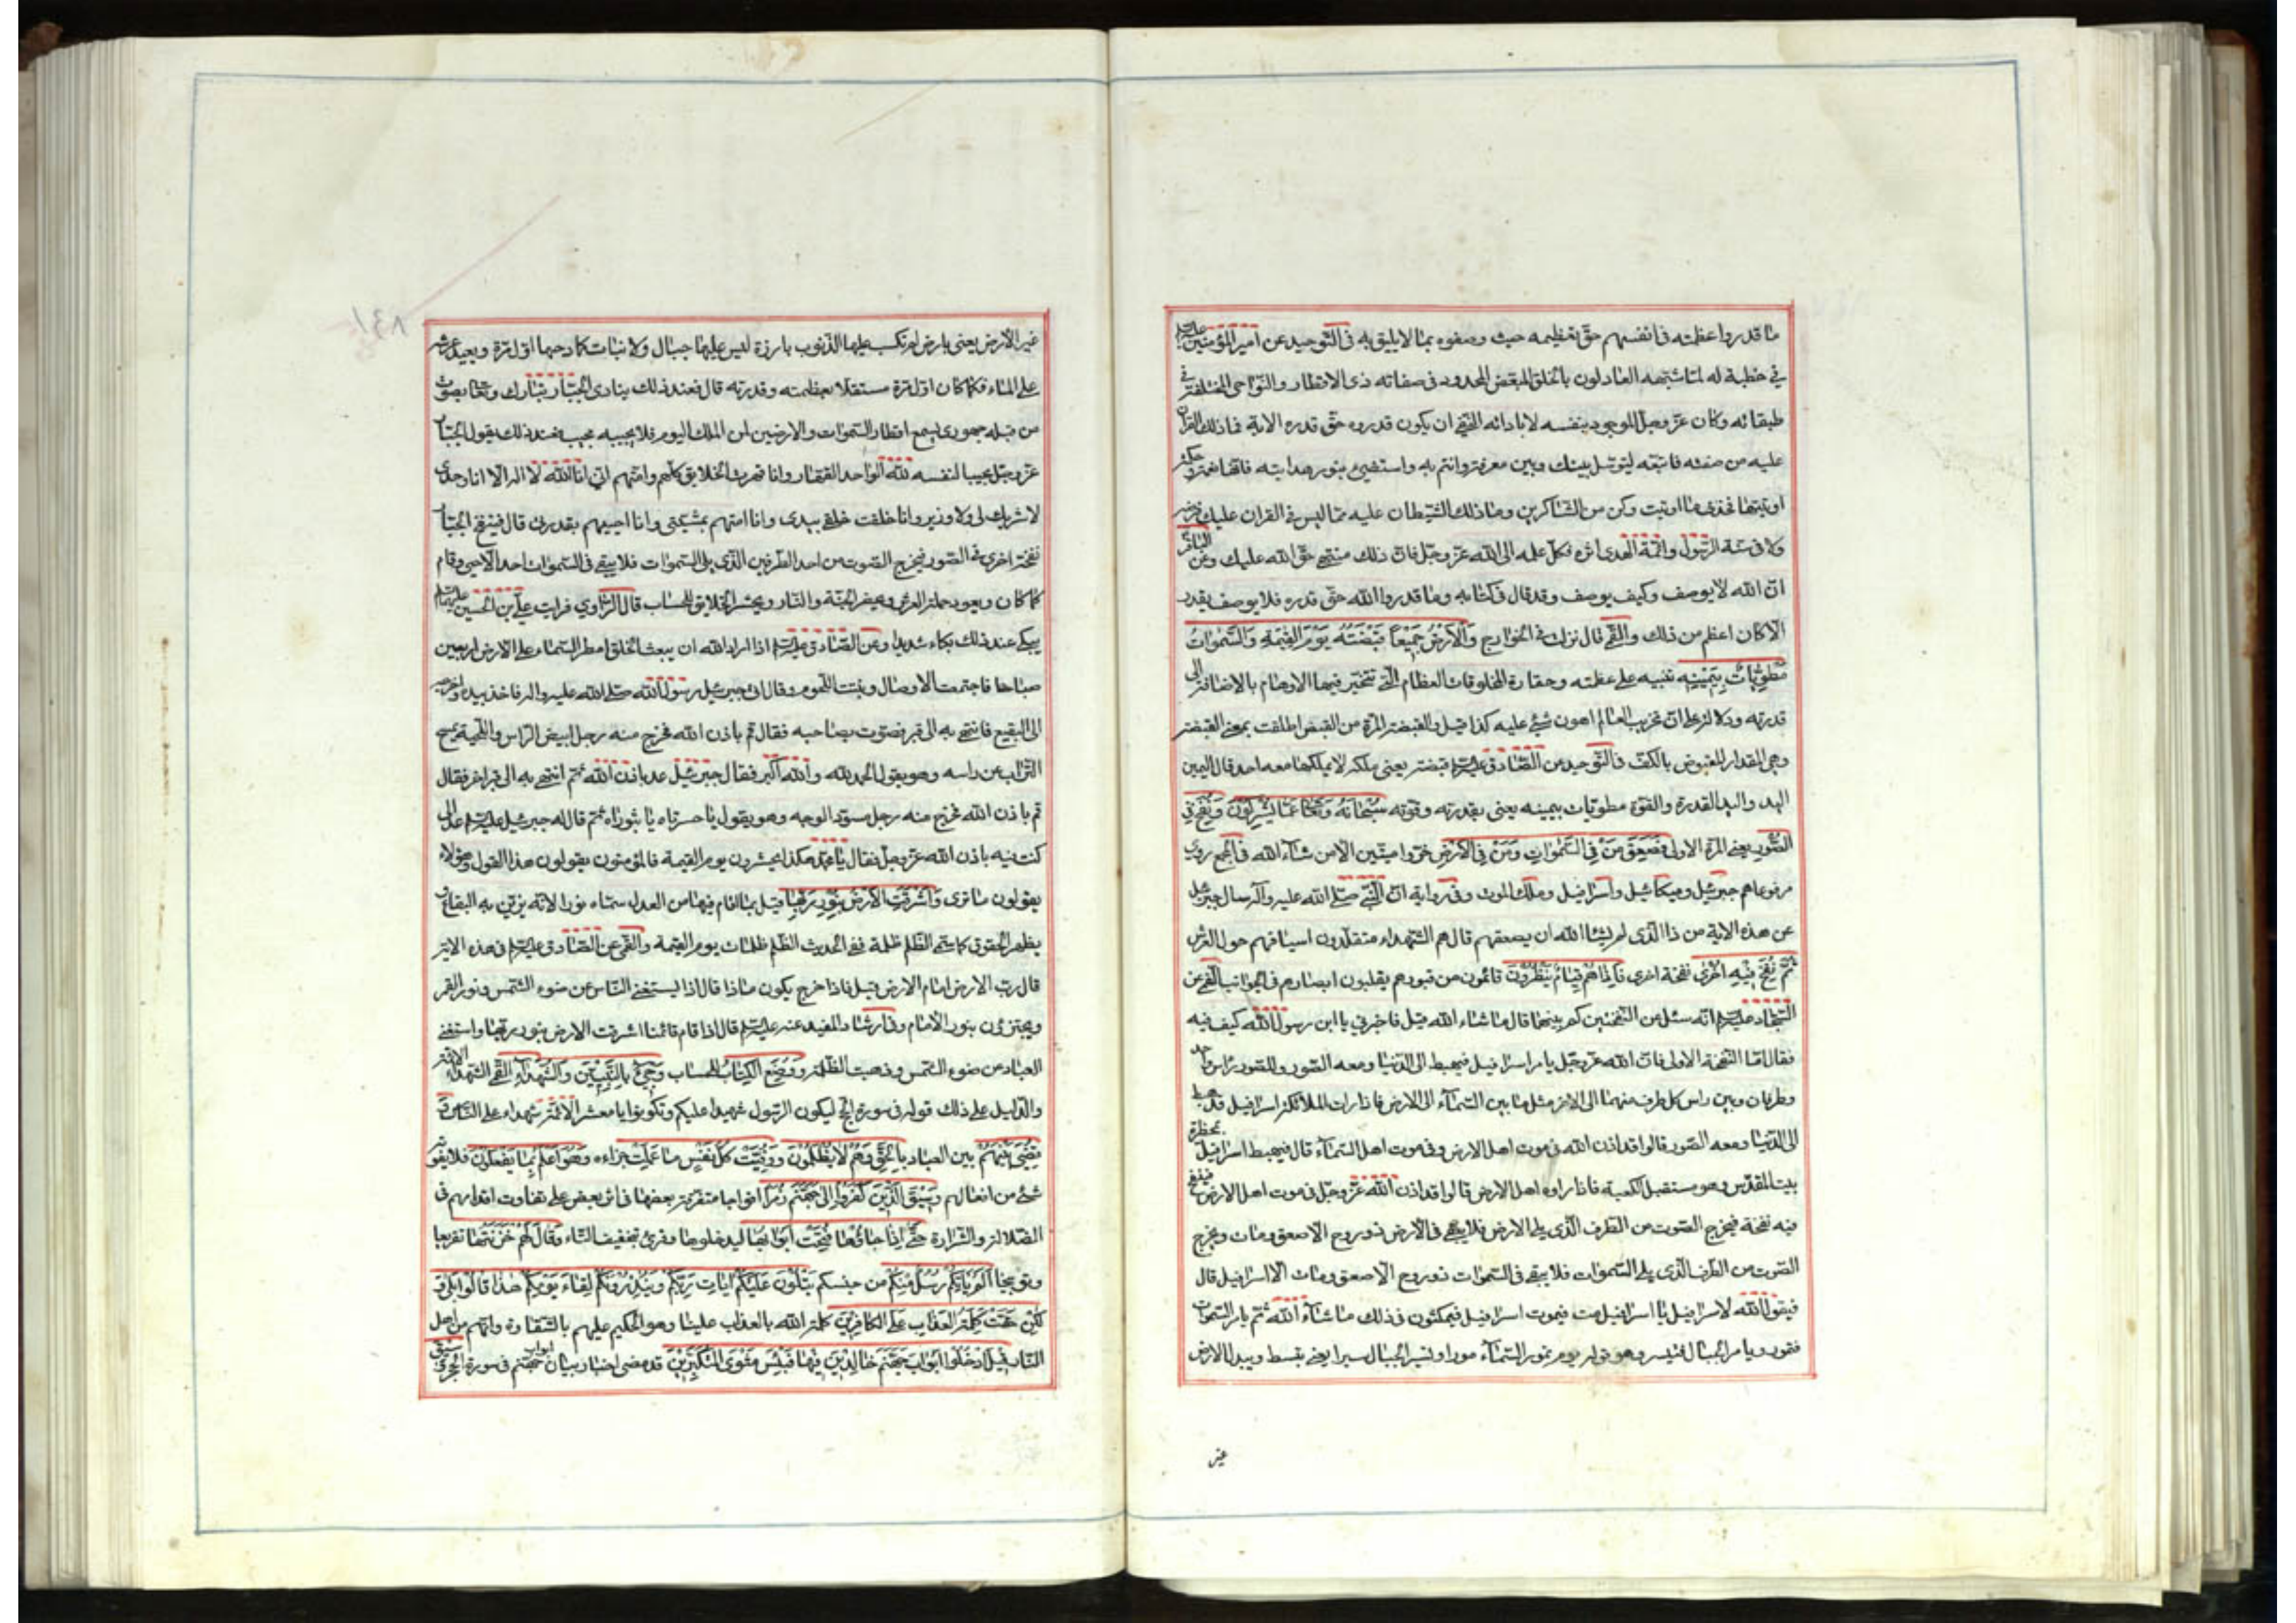 ما قدروا عظمته في انفسهم حق تعظيمه حيث وصفوه بما لا يليق به في التوحيد عن امير المؤمنين عليه السلم
في خطبة له لما شبهه العادلون بالخلق المبعض المحدود في صفاته ذى الاقطار والنواحى المختلفة في
طبقاته وكان عز وجل الموجود بنفسه لا باداته انتفى ان يكون قدروه حق قدره الاية فما دلك القران
عليه من صفته فاتبعه ليتوسل بينك وبين معرفته وائتم به واستضئ بنور هدايته فانها نعمة وحكمة
اوتيتها فخذ ما اوتيت وكن من الشاكرين وما دلك الشيطان عليه مما ليس في القران عليك فرضه
ولا في سنة الرسول وائمة الهدى اثره فكل علمه الى الله عز وجل فان ذلك منتهى حق الله عليك وعن الباقر
ان الله لا يوصف وكيف يوصف وقد قال في كتابه وما قدروا الله حق قدره فلا يوصف بقدر
الا كان اعظم من ذلك والقمى قال نزلت في الخوارج وَالْاَرْضُ جَمِيْعًا قَبْضَتُهُ يَوْمَ الْقِيٰمَةِ وَالسَّمٰوَاتُ
مَطْوِيَّاتٌ بِيَمِيْنِهِ تنبيه على عظمته وحقارة المخلوقات العظام التي تتحير فيها الاوهام بالاضافة الى
قدرته ودلالة على ان تخريب العالم اهون شئ عليه كذا قيل والقبضة المرة من القبض اطلقت بمعنى القبضة
وهي المقدار المقبوض بالكف في التوحيد عن الصادق عليه السلم قبضته يعنى ملكه لا يملكها معه احد قال اليمين
اليد واليد القدرة والقوة مطويات بيمينه يعنى بقدرته وقوته سُبْحَانَهُ وَتَعَالٰى عَمَّا يُشْرِكُوْنَ وَنُفِخَ فِي
الصُّوْرِ يعنى المرة الاولى فَصَعِقَ مَنْ فِي السَّمٰوَاتِ وَمَنْ فِي الْاَرْضِ خروا ميتين الا من شاء الله في المجمع روى
مرفوعا هم جبرئيل وميكائيل واسرافيل وملك الموت وفي رواية ان النبي صلى الله عليه وآله سال جبرئيل
عن هذه الاية من ذا الذى لم يشأ الله ان يصعقهم قال هم الشهداء متقلدون اسيافهم حول العرش
ثُمَّ نُفِخَ فِيْهِ اُخْرٰى نفخة اخرى فَاِذَا هُمْ قِيَامٌ يَنْظُرُوْنَ قائمون من قبورهم يقلبون ابصارهم في الجوانب القمى عن
السجاد عليه السلم انه سئل عن النفختين كم بينهما قال ما شاء الله قيل فاخبرني يا ابن رسول الله كيف فيه
فقال اما النفخة الاولى فان الله عز وجل يامر اسرافيل فيهبط الى الدنيا ومعه الصور وللصور راس واحد
وطرفان وبين راس كل طرف منهما الى الاخر مثل ما بين السماء الى الارض فاذا رات الملائكة اسرافيل قد هبط
الى الدنيا ومعه الصور قالوا قد اذن الله في موت اهل الارض وفي موت اهل السماء قال فيهبط اسرافيل بحظرة
بيت المقدس وهو مستقبل الكعبة فاذا راوه اهل الارض قالوا قد اذن الله عز وجل في موت اهل الارض فينفخ
فيه نفخة فيخرج الصوت من الطرف الذى يلى الارض فلا يبقى في الارض ذو روح الا صعق ومات ويخرج
الصوت من الطرف الذى يلى السموات فلا يبقى في السموات ذو روح الا صعق ومات الا اسرافيل قال
فيقول الله لاسرافيل يا اسرافيل مت فيموت اسرافيل فيمكثون في ذلك ما شاء الله ثم يامر السموات
فتمور ويامر الجبال فتسير وهو قوله يوم تمور السماء مورا وتسير الجبال سيرا يعنى تبسط ويبدل الارض
غير
غير الارض يعنى بارض لم تكسب عليها الذنوب بارزة ليس عليها جبال ولا نبات كما دحيها اول مرة ويعيد عرشه
على الماء كما كان اول مرة مستقلا بعظمته وقدرته قال فعند ذلك ينادى الجبار تبارك وتعالى بصوت
من قبله جهورى يسمع اقطار السموات والارضين لمن الملك اليوم فلا يجيبه مجيب فعند ذلك يقول الجبار
عز وجل مجيبا لنفسه لله الواحد القهار وانا قهرت الخلايق كلهم وامتهم انى انا الله لا اله الا انا وحدى
لا شريك لى ولا وزير وانا خلقت خلقى بيدى وانا امتهم بمشيتى وانا احييهم بقدرتى قال فينفخ الجبار
نفخة اخرى في الصور فيخرج الصوت من احد الطرفين الذى يلى السموات فلا يبقى في السموات احد الا حيى وقام
كما كان ويعود حملة العرش ويحضر الجنة والنار ويحشر الخلايق للحساب قال الراوي فرايت على بن الحسين عليهما السلم
يبكى عند ذلك بكاء شديدا وعن الصادق عليه السلم اذا اراد الله ان يبعث الخلق امطر السماء على الارض اربعين
صباحا فاجتمعت الاوصال ونبتت اللحوم وقال اتى جبرئيل رسول الله صلى الله عليه واله فاخذ بيده واخرجه
الى البقيع فانتهى به الى قبر فصوت بصاحبه فقال قم باذن الله فخرج منه رجل ابيض الراس واللحية يمسح
التراب عن راسه وهو يقول الحمد لله والله اكبر فقال جبرئيل عد باذن الله ثم انتهى به الى قبر اخر فقال
قم باذن الله فخرج منه رجل مسود الوجه وهو يقول يا حسرتاه يا ثبوراه ثم قال له جبرئيل عليه السلم عد الى ما
كنت فيه باذن الله عز وجل فقال يا محمد هكذا يحشرون يوم القيمة فالمؤمنون يقولون هذا القول وهؤلاء
يقولون ما ترى وَاَشْرَقَتِ الْاَرْضُ بِنُوْرِ رَبِّهَا قيل بما اقام فيها من العدل سماه نورا لانه يزين به البقاع و
يظهر الحقوق كما سمى الظلم ظلمة ففي الحديث الظلم ظلمات يوم القيمة والقمى عن الصادق عليه السلم في هذه الاية
قال رب الارض امام الارض قيل فاذا خرج يكون ماذا قال اذا يستغنى الناس عن ضوء الشمس ونور القمر
ويجتزؤن بنور الامام وفي ارشاد المفيد عنه عليه السلم قال اذا قام قائمنا اشرقت الارض بنور ربها واستغنى
العباد من ضوء الشمس وذهبت الظلمة وَوُضِعَ الْكِتَابُ للحساب وَجِيْءَ بِالنَّبِيِّيْنَ وَالشُّهَدَاءِ القمى الشهداء الائمة
والدليل على ذلك قوله في سورة الحج ليكون الرسول شهيدا عليكم وتكونوا يا معشر الائمة شهداء على الناس وَ
قُضِيَ بَيْنَهُمْ بين العباد بِالْحَقِّ وَهُمْ لَا يُظْلَمُوْنَ وَوُفِّيَتْ كُلُّ نَفْسٍ مَا عَمِلَتْ جزاءه وَهُوَ اَعْلَمُ بِمَا يَفْعَلُوْنَ فلا يفوته
شئ من افعالهم وَسِيْقَ الَّذِيْنَ كَفَرُوْا اِلٰى جَهَنَّمَ زُمَرًا افواجا متفرقة بعضها في اثر بعض على تفاوت اقدامهم في
الضلالة والشرارة حَتّٰى اِذَا جَاؤُهَا فُتِحَتْ اَبْوَابُهَا ليدخلوها وقرئ بتخفيف التاء وَقَالَ لَهُمْ خَزَنَتُهَا تقريعا
وتوبيخا اَلَمْ يَاْتِكُمْ رُسُلٌ مِنْكُمْ من جنسكم يَتْلُوْنَ عَلَيْكُمْ اٰيَاتِ رَبِّكُمْ وَيُنْذِرُوْنَكُمْ لِقَاءَ يَوْمِكُمْ هٰذَا قَالُوْا بَلٰى وَ
لٰكِنْ حَقَّتْ كَلِمَةُ الْعَذَابِ عَلَى الْكَافِرِيْنَ كلمة الله بالعذاب علينا وهو الحكم عليهم بالشقاوة وانهم من اهل
النار قِيْلَ ادْخُلُوْا اَبْوَابَ جَهَنَّمَ خَالِدِيْنَ فِيْهَا فَبِئْسَ مَثْوَى الْمُتَكَبِّرِيْنَ قد مضى اخبار بيان ابواب جهنم في سورة الحجر وَسِيْقَ